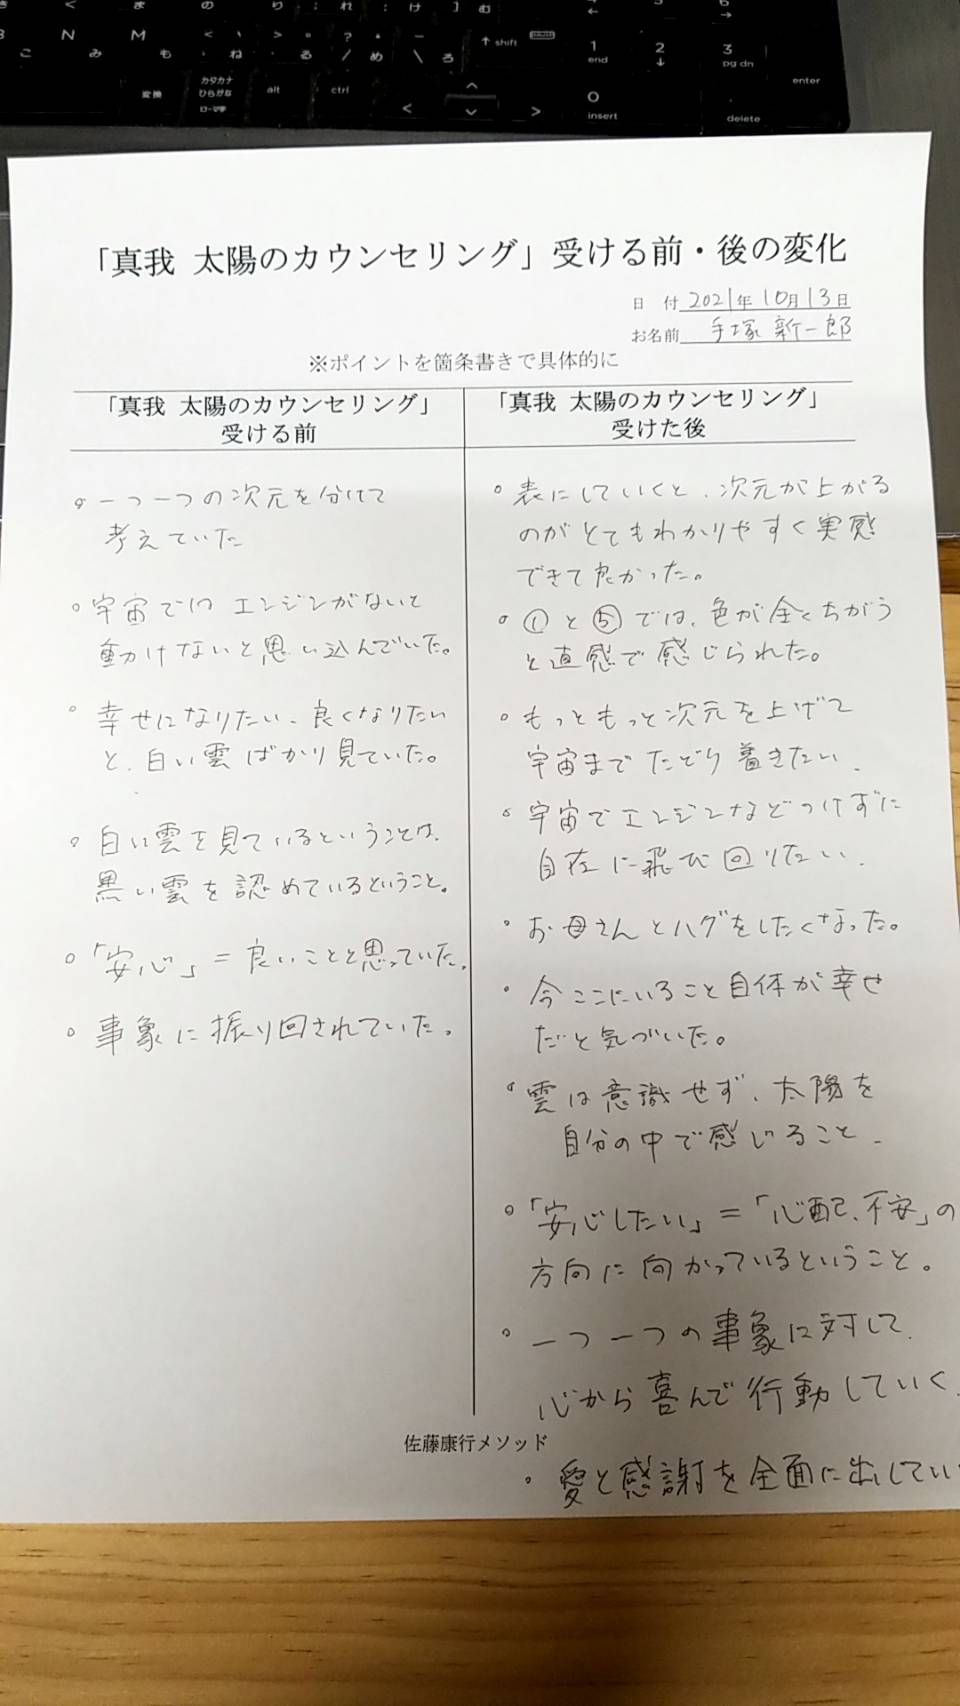 「真我 太陽のカウンセリング」受ける前・後の変化
日 付 2021年10月13日
お名前 手塚 新一郎
※ポイントを箇条書きで具体的に
「真我 太陽のカウンセリング」
受ける前
○一つ一つの次元を分けて
考えていた
○宇宙では エンジンがないと
動けないと思い込んでいた。
○幸せになりたい、良くなりたい
と、白い雲ばかり見ていた。
○白い雲を見ているということは、
黒い雲を認めているということ。
○「安心」=良いことと思っていた。
○事象に振り回されていた。
「真我 太陽のカウンセリング」
受けた後
○表にしていくと、次元が上がる
のがとてもわかりやすく実感
できて良かった。
○①と⑤では、色が全くちがう
と直感で感じられた。
○もっともっと次元を上げて
宇宙まで たどり着きたい、
○宇宙でエンジンなどつけずに
自在に飛び回りたい、
○お母さんとハグをしたくなった。
○今ここにいること自体が幸せ
だと気づいた。
○雲は意識せず、太陽を
自分の中で感じること、
○「安心したい」=「心配、不安」の
方向に向かっているということ。
○一つ一つの事象に対して、
心から喜んで行動していく、
○愛と感謝を全面に出してい
佐藤康行メソッド
変換
カタカナ
ひらがな
ローマ字
alt
ctrl
shift
1
end
2
3
pg dn
0
insert
delete
enter
N
M
み
も
ね
る
め
ろ